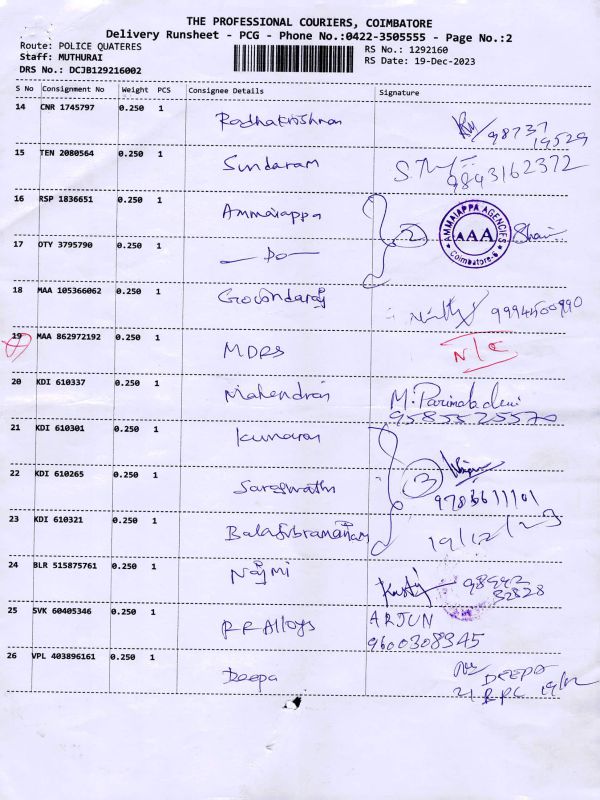 THE PROFESSIONAL COURIERS, COIMBATORE
Delivery Runsheet - PCG - Phone No.:0422-3505555 - Page No.:2
Route: POLICE QUATERES
RS No.: 1292160
Staff: MUTHURAI
RS Date: 19-Dec-2023
DRS No.: DCJB129216002
S No Consignment No Weight PCS Consignee Details Signature
14 CNR 1745797 0.250 1 Radhakrishnan 98737
19529
15 TEN 2080564 0.250 1 Sundaram
9843162372
16 RSP 1836651 0.250 1 Ammaiappa
2 AMMAIAPPA AGENCIES AAA Coimbatore-6
17 OTY 3795790 0.250 1 Do
18 MAA 105366062 0.250 1 Govindaraj 9994500990
19 MAA 862972192 0.250 1 MDRS N/C
20 KDI 610337 0.250 1 Mahendran M.
9585525570
21 KDI 610301 0.250 1 Kumaran
22 KDI 610265 0.250 1 Saraswathi 3
9783611101
23 KDI 610321 0.250 1 Balasubramaniam 19/12/23
24 BLR 515875761 0.250 1 98942
32828
25 SVK 60405346 0.250 1 RR Alloys ARJUN
9600308345
26 VPL 403896161 0.250 1 Deepa DEEPA
19/12